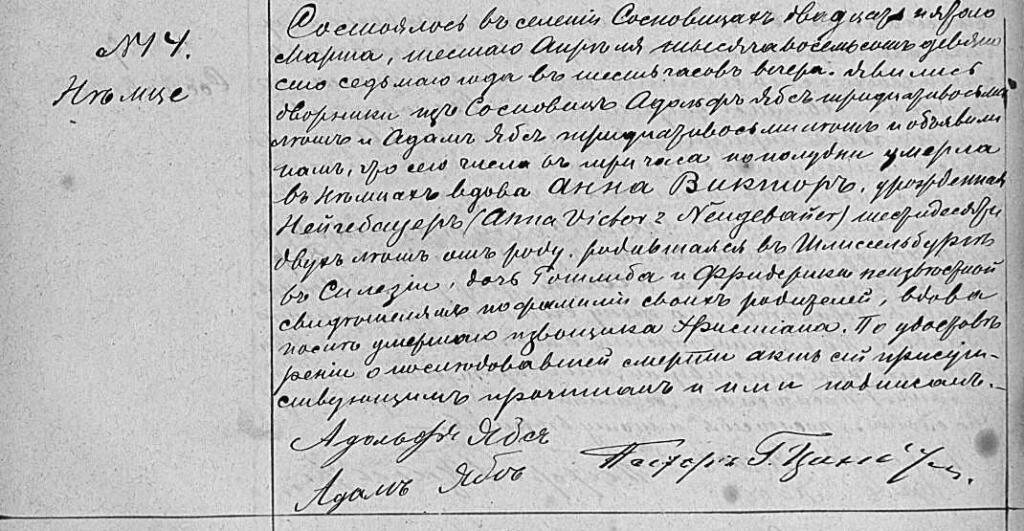 №14.
Нѣмце
Состоялось въ селеніи Сосновицахъ двадцать перваго
Марта, шестаго Апрѣля тысяча восемьсотъ девяно
сто седьмаго года въ шесть часовъ вечера. Явились
дворники изъ Сосновицъ Адольфъ Ябсъ тридцативосьми
лѣтъ и Адамъ Ябсъ тридцативосьмилѣтъ и объявили
намъ, что сего числа въ три часа пополудни умерла
въ Нѣмцахъ вдова Анна Викторъ, урожденная
Нейгебауеръ (Anna Victor z Neugebauer) шестидесяти
двухъ лѣтъ отъ роду, родившаяся въ Шлиссельбургѣ
въ Силезіи, дочь Готлиба и Фридерики неизвѣстной
свидѣтелямъ пофамиліи своихъ родителей, вдова
послѣ умершаго извощика Христіана. По удостовѣ
реніи о послѣдовавшей смерти актъ сей присут-
ствующимъ прочитанъ и ими подписанъ.-
Адольфъ Ябсъ
Адамъ Ябсъ
Пасторъ Г.